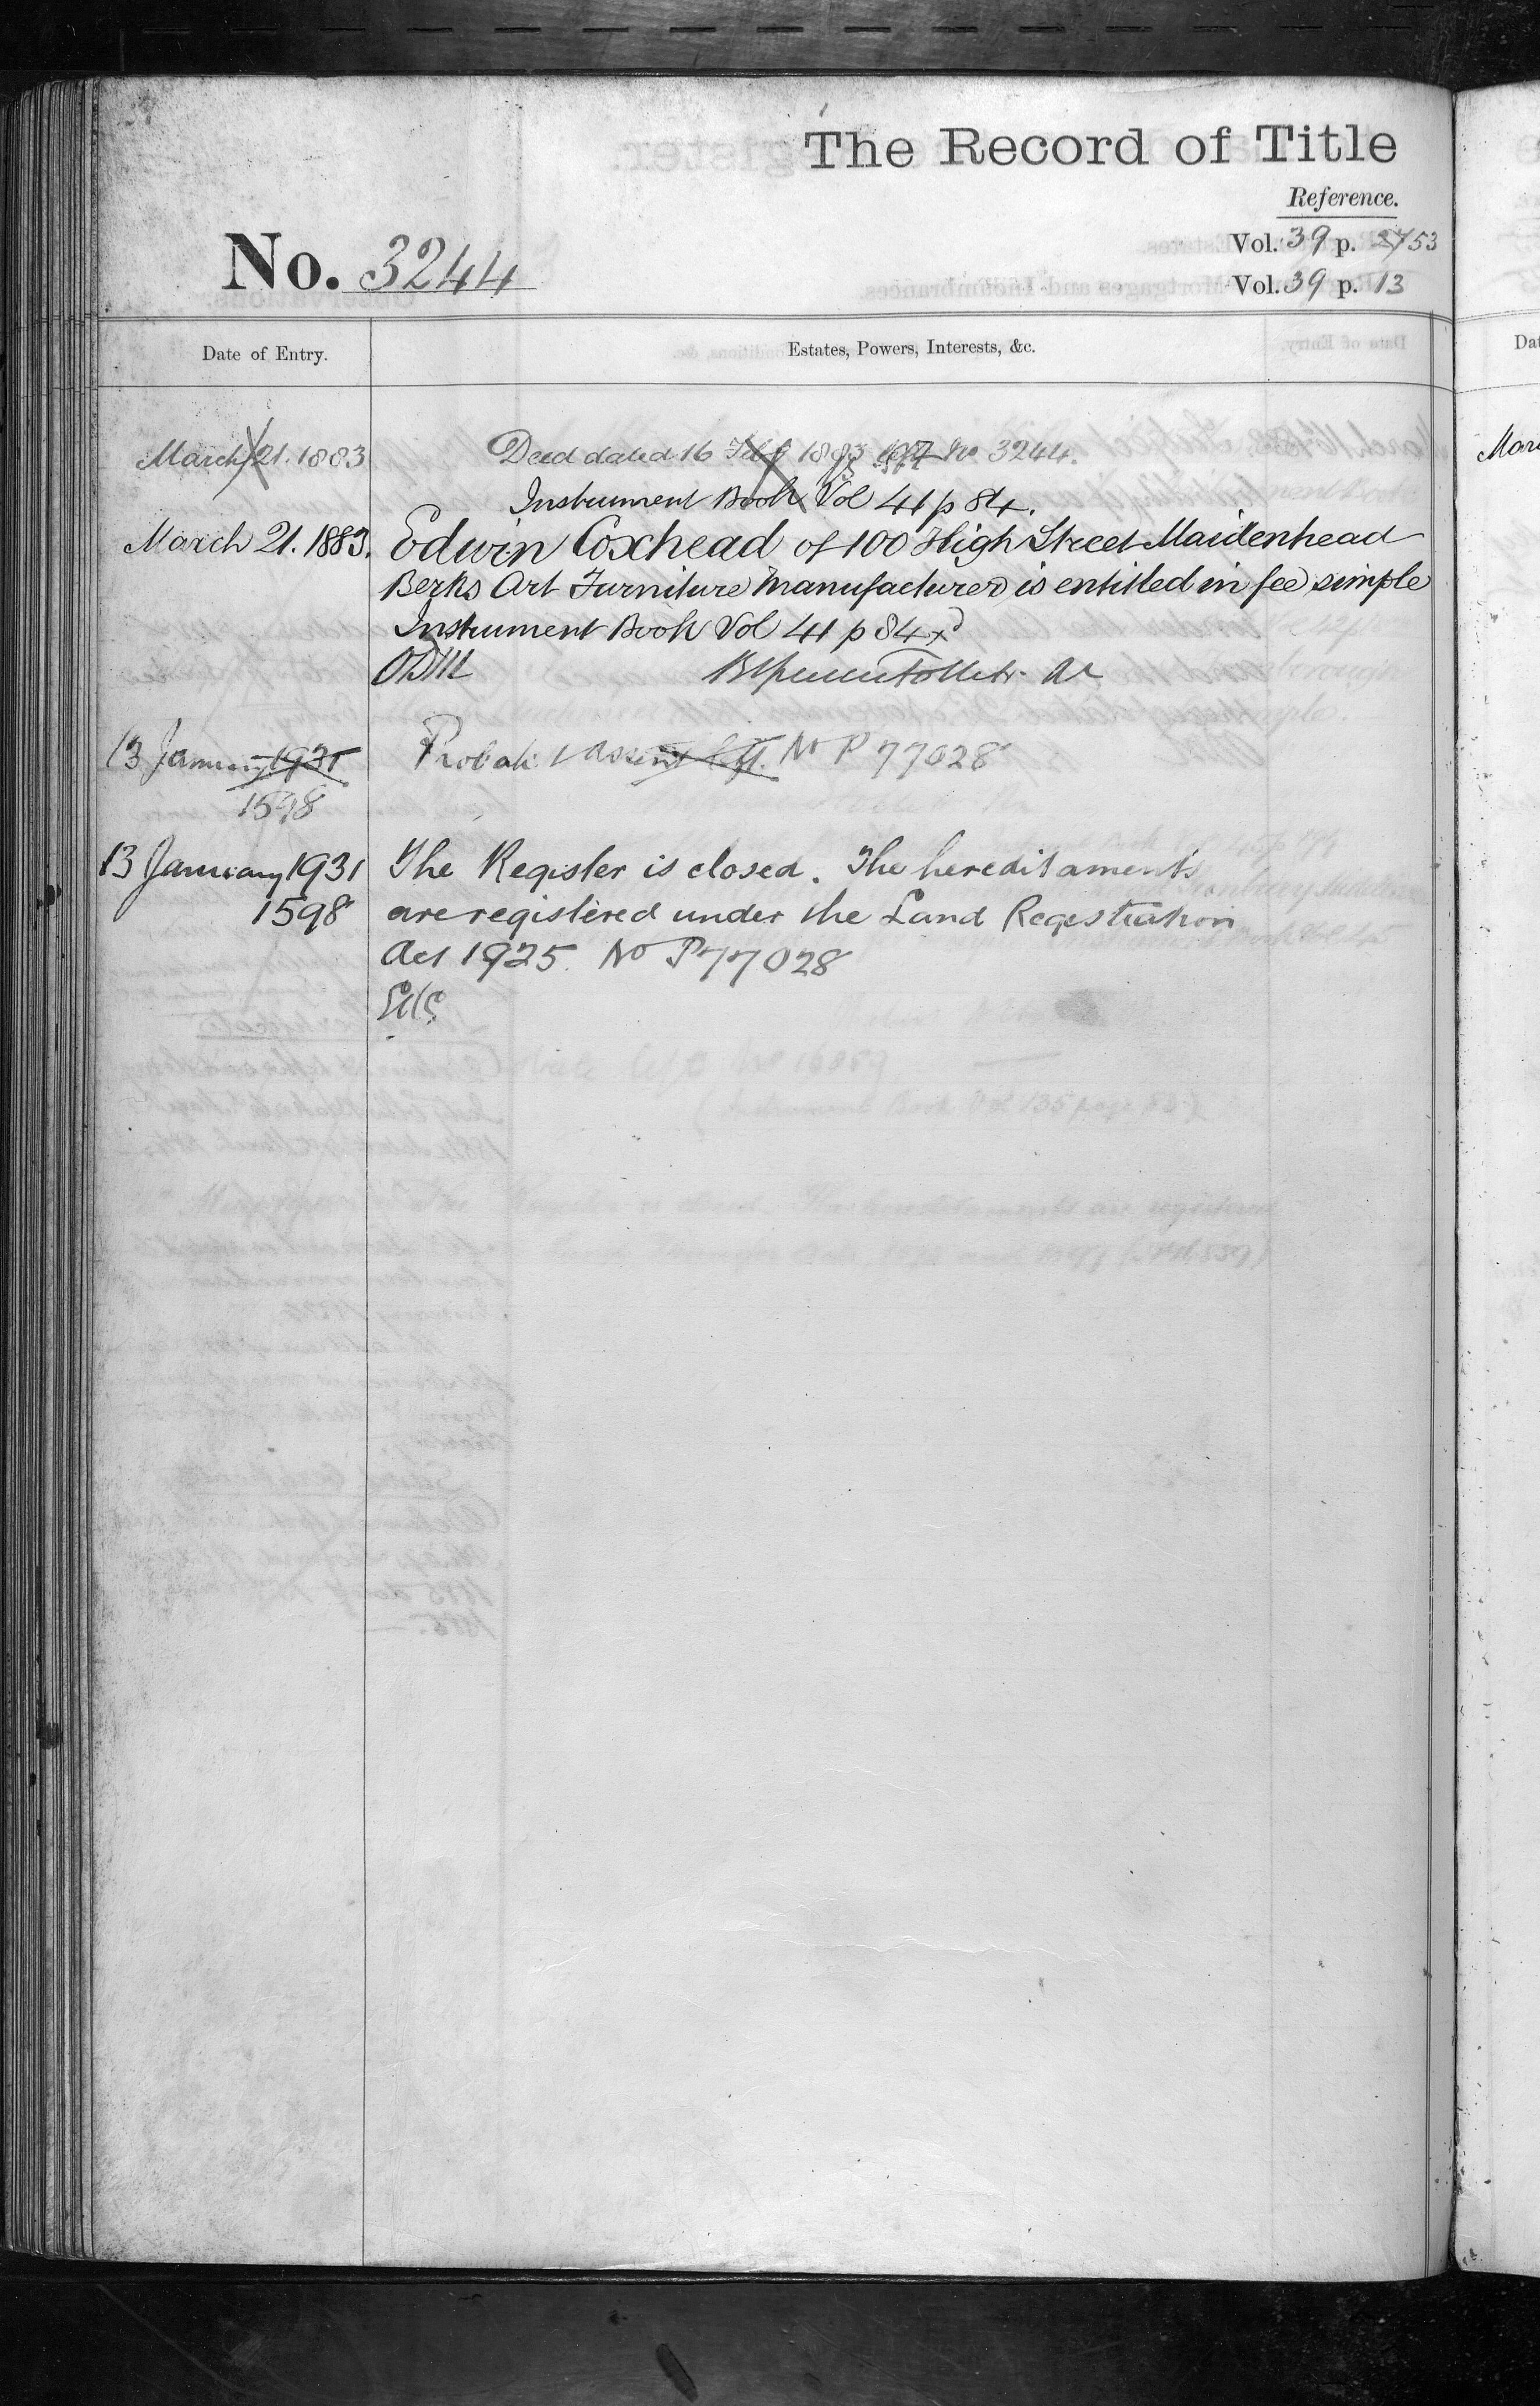 The Record of Title
Reference.
No. 3244
Vol. 39 p. 53
Vol. 39 p. 13
Date of Entry.
Estates, Powers, Interests, &c.
March 21. 1883
Deed dated 16 Feby 1883 No 3244.
Instrument Book Vol 41 p 84.
March 21. 1883.
Edwin Coxhead of 100 High Street Maidenhead
Berks Art Furniture Manufacturer is entitled in fee simple
Instrument Book Vol 41 p 84
13 January 1931
1598
Probate & Assent No P 77028
13 January 1931
1598
The Register is closed. The hereditaments
are registered under the Land Registration
Act 1925. No P77028